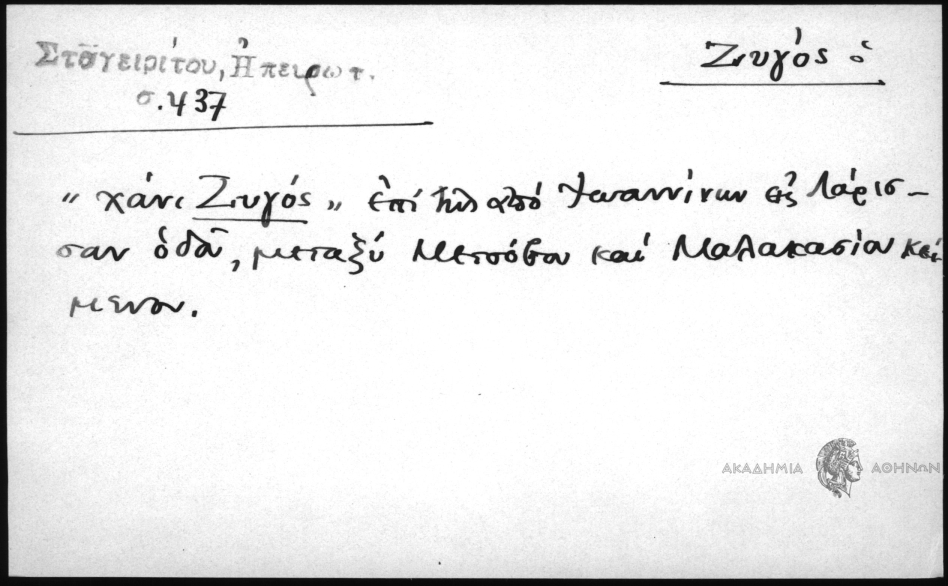 Σταγειρίτου, Ἠπειρωτ.
σ. 437
Ζυγός ὁ
„ χάνι Ζυγός „ ἐπί τῆς ἀπό Ἰωαννίνων εἰς Λάρισ-
σαν ὁδοῦ, μεταξύ Μετσόβου καί Μαλακασίου κεί-
μενον.
ΑΚΑΔΗΜΙΑ ΑΘΗΝΩΝ